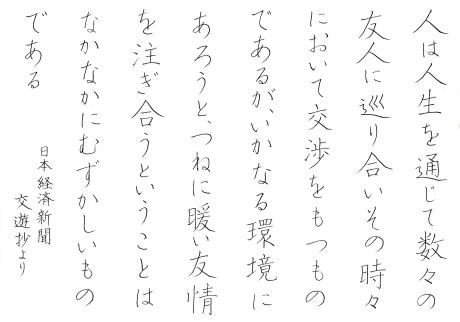 人は人生を通じて数々の
友人に巡り合いその時々
において交渉をもつもの
であるが、いかなる環境に
あろうと、つねに暖い友情
を注ぎ合うということは
なかなかにむずかしいもの
である
日本経済新聞
交遊抄より